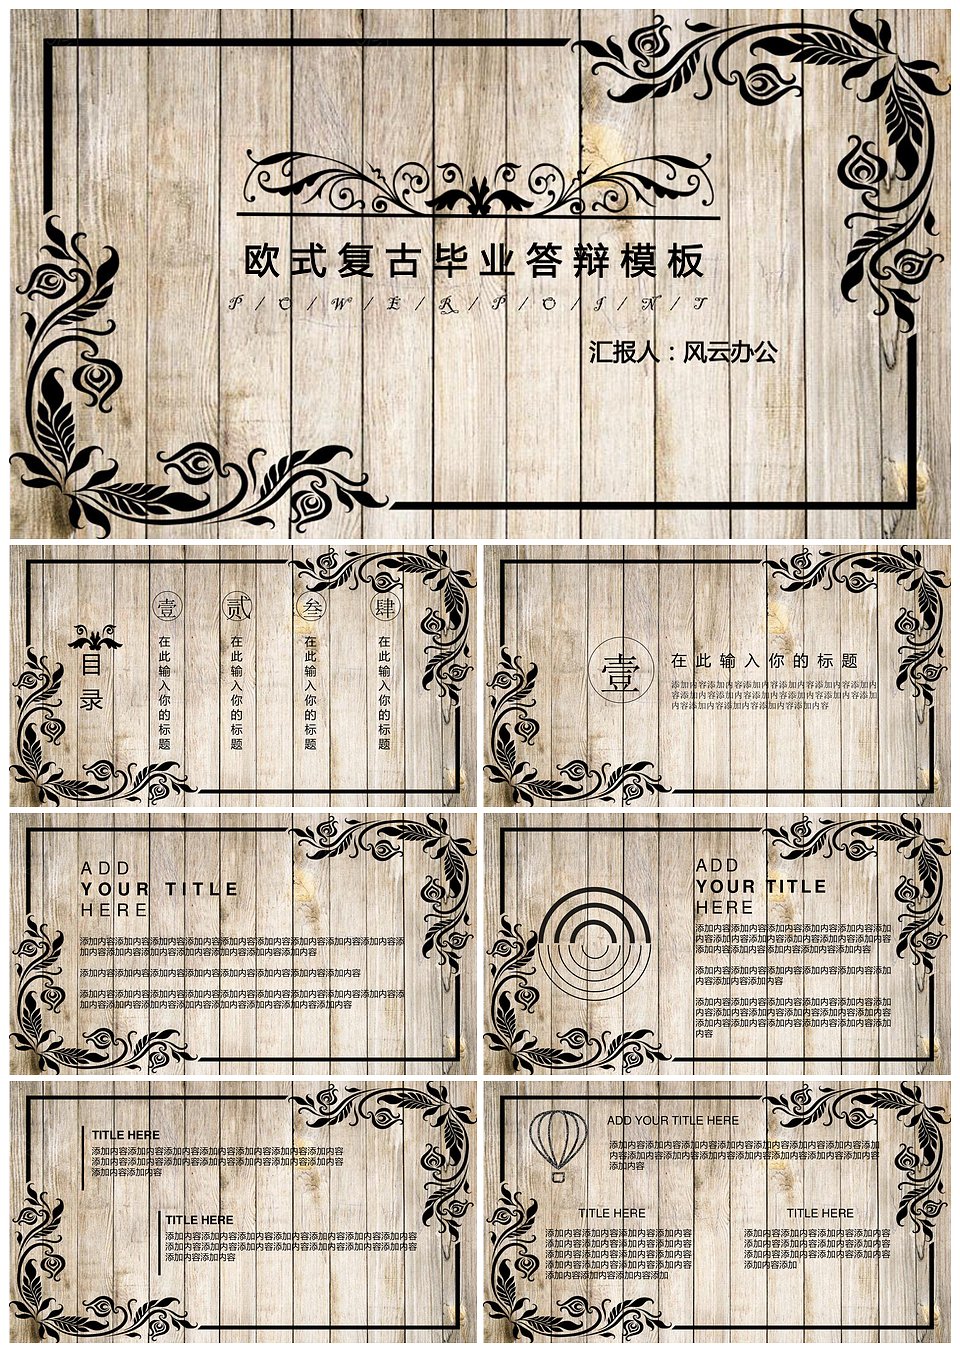 欧式复古毕业答辩模板
P / O / W / E / R / P / O / I / N / T
汇报人：风云办公
目录
壹
在此输入你的标题
贰
在此输入你的标题
叁
在此输入你的标题
肆
在此输入你的标题
壹
在此输入你的标题
添加内容添加内容添加内容添加内容添加内容添加内
容添加内容添加内容添加内容添加内容添加内容添加
内容添加内容添加内容添加内容添加内容
ADD
YOUR TITLE
HERE
添加内容添加内容添加内容添加内容添加内容添加内容添加内容添加内容添加内容添
加内容添加内容添加内容添加内容添加内容添加内容添加内容
添加内容添加内容添加内容添加内容添加内容添加内容添加内容添加内容
添加内容添加内容添加内容添加内容添加内容添加内容添加内容添加内容添加内容添
加内容添加内容添加内容添加内容添加内容添加内容添加内容添加内容
ADD
YOUR TITLE
HERE
添加内容添加内容添加内容添加内容添加内容添加
内容添加内容添加内容添加内容添加内容添加内容
添加内容添加内容添加内容添加内容添加内容
添加内容添加内容添加内容添加内容添加内容添加
内容添加内容添加内容
添加内容添加内容添加内容添加内容添加内容添加
内容添加内容添加内容添加内容添加内容添加内容
添加内容添加内容添加内容添加内容添加内容添加
内容
TITLE HERE
添加内容添加内容添加内容添加内容添加内容添加内容添加内容
添加内容添加内容添加内容添加内容添加内容添加内容添加内容
添加内容添加内容
TITLE HERE
添加内容添加内容添加内容添加内容添加内容添加内容添加内容
添加内容添加内容添加内容添加内容添加内容添加内容添加内容
添加内容添加内容
ADD YOUR TITLE HERE
添加内容添加内容添加内容添加内容添加内容添加内容添加内容添加
内容添加内容添加内容添加内容添加内容添加内容添加内容添加内容
添加内容
TITLE HERE
添加内容添加内容添加内容添加内容添加
内容添加内容添加内容添加内容添加内容
添加内容添加内容添加内容添加内容添加
内容添加内容添加内容添加内容添加内容
添加内容添加内容添加内容添加
TITLE HERE
添加内容添加内容添加内容添加内容添加
内容添加内容添加内容添加内容添加内容
添加内容添加内容添加内容添加内容添加
内容添加内容添加